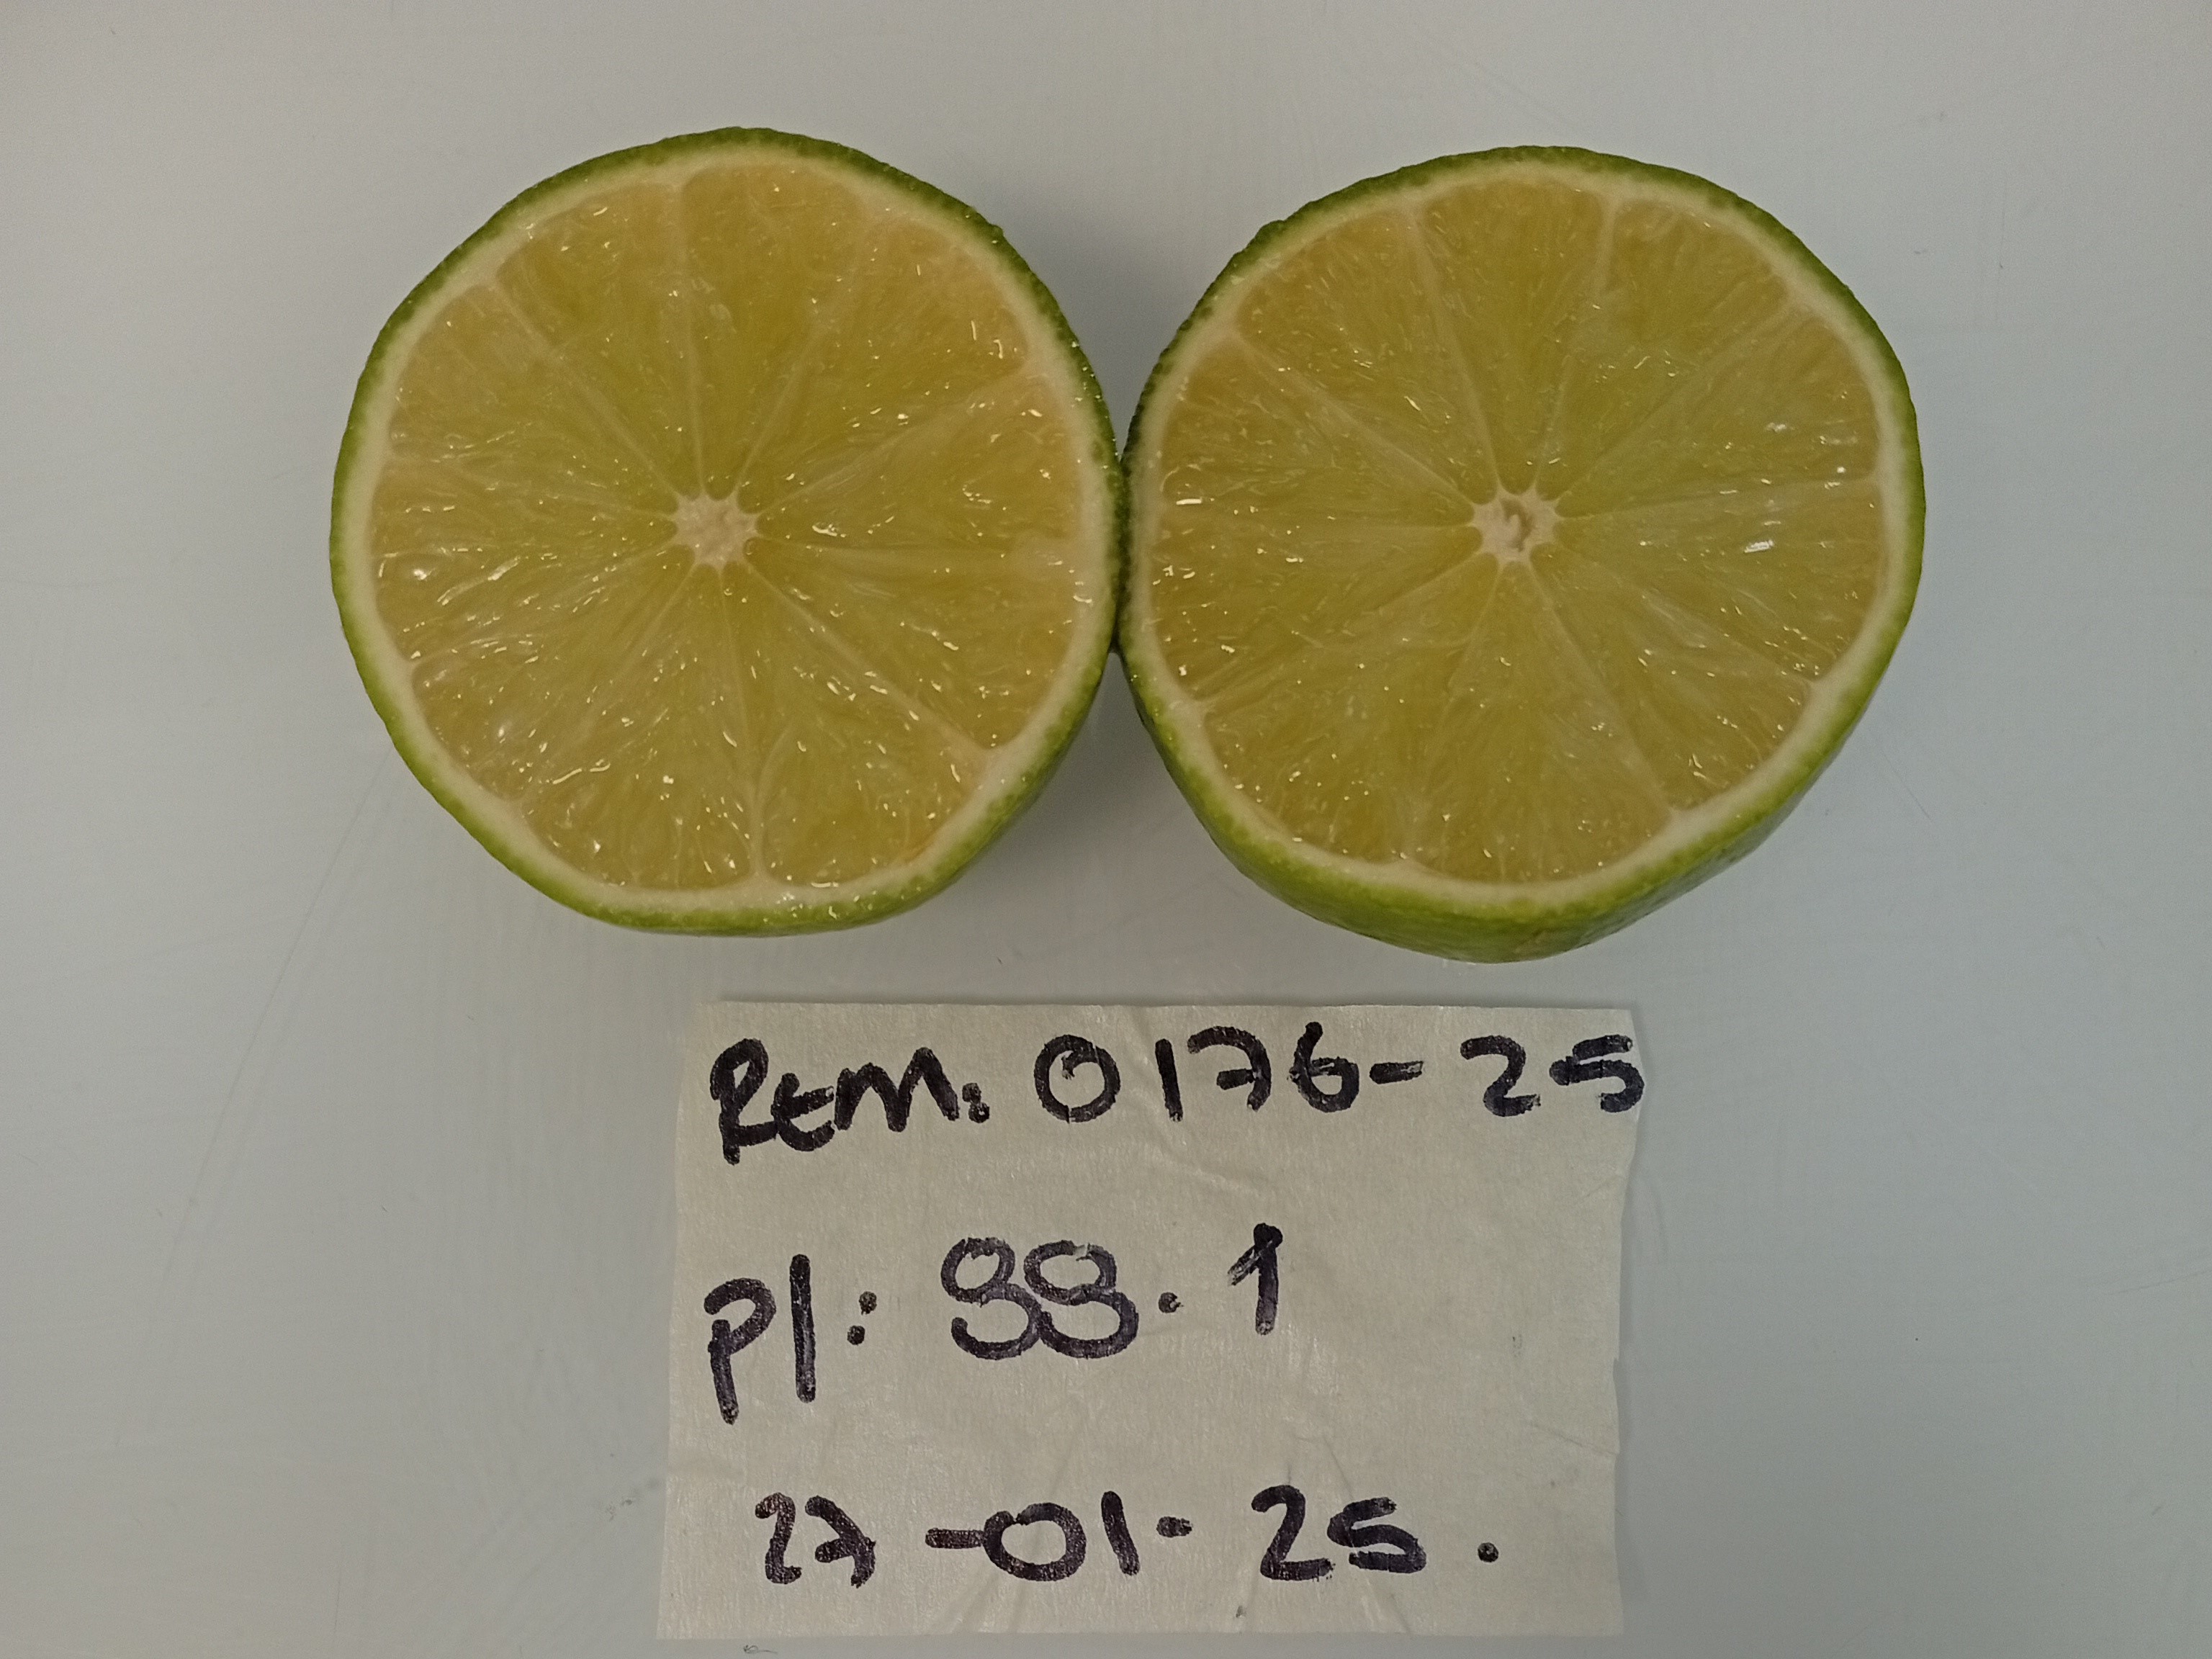 Rem: 0176-25
Pl: 99.1
27-01-25.